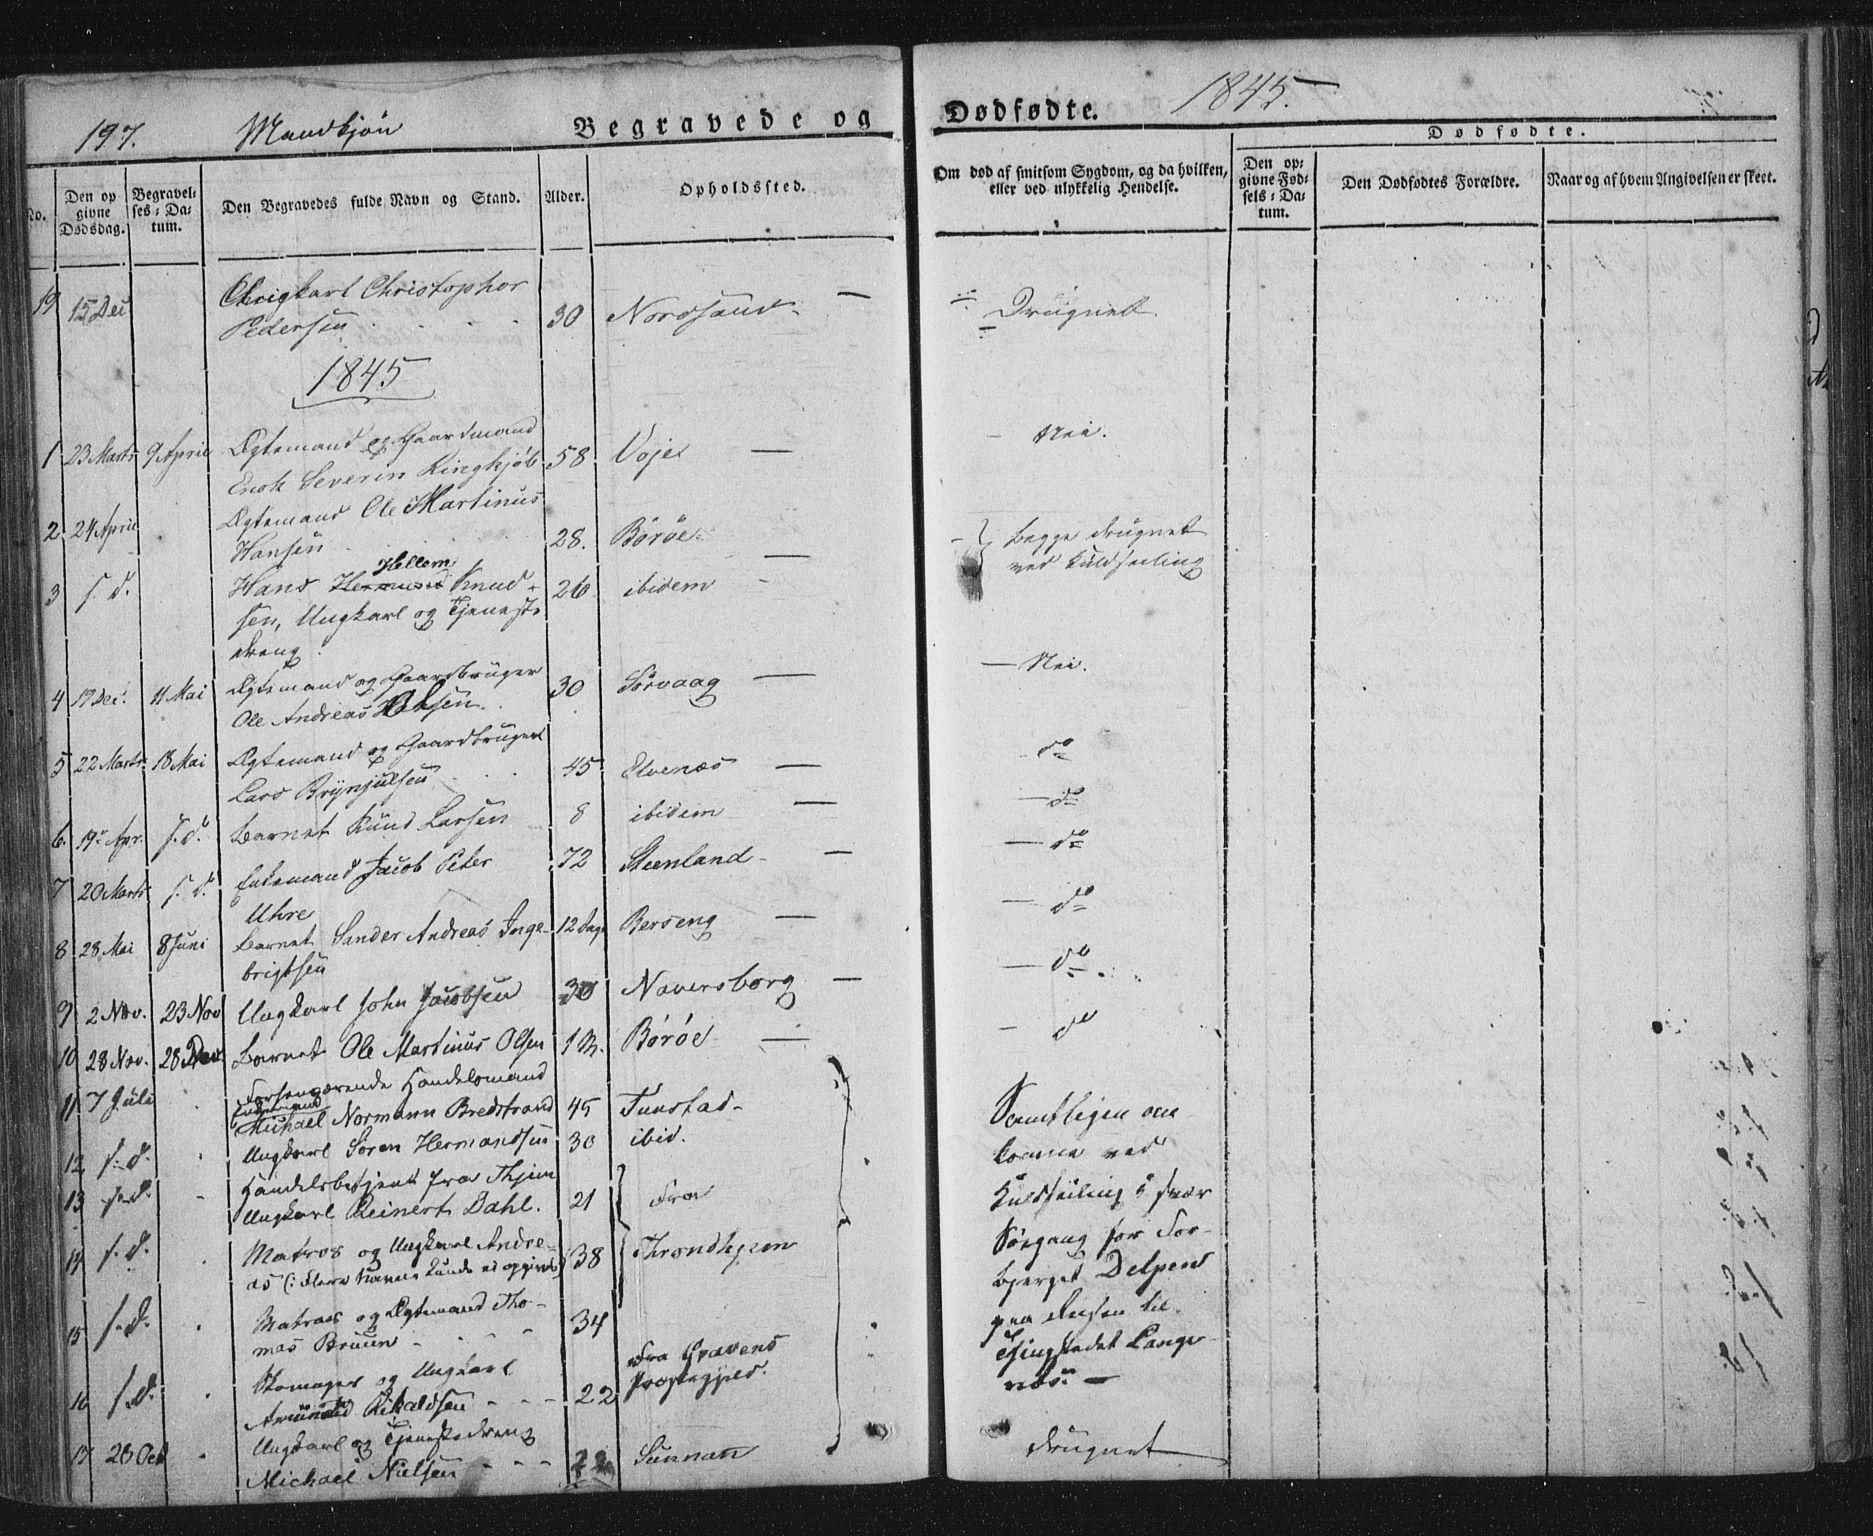 197. Mandkjøn Begravede og Dødfødte. 1845.
Dødfødte.
No.
Den op givne Dødsdag.
Begravelses-Datum.
Den Begravedes fulde Navn og Stand.
Alder.
Opholdssted.
Om død af smitsom Sygdom, og da hvilken, eller ved ulykkelig Hendelse.
Den opgivne Fødsels-Datum.
Den Dødfødtes Forældre.
Naar og af hvem Angivelsen er skeet.
19 15 Dec Ungkarl Christopher
Pedersen 30 Nordsand — Drugnet
1845
1 23 Marts 9 April Ægtemand og Gaardmand
Enok Severin Ringkjøb 58 Voje — Nei.
2 24 April Ægtemand Ole Martinus
Hansen 28. Børøe — } Begge drugnet
ved Kuldseiling
3 s. d. Hans Hellem Knud-
sen, Ungkarl og Tjeneste
dreng 26 ibidem
4 17 Dec. 11 Mai Ægtemand og Gaardbruger
Ole Andreas Olsen 30 Sørvaag — Nei.
5 22 Marts 18 Mai Ægtemand og Gaardbruger
Lars Brynjulsen 45 Elvenæs — do
6. 19 Apr. s. d. Barnet Knud Larsen 8 ibidem — do
7 20 Marts s. d. Enkemand Jacob Peter
Uhre 72 Steenland — do
8 28 Mai 8 Juni Barnet Sander Andreas Inge-
brigtsen 12 Dage Berseng — do
9 2 Nov. 23 Nov Ungkarl John Jacobsen 30 Naversborg — do
10 28 Nov. 28 Dec Barnet Ole Martinus Olsen 1 M. Børøe — do
11 7 Juli Forhenværende Handelsmand
Enkemand
Michael Normann Bredstrand 45 Tunstad - Samtligen om
12 s. d. Ungkarl Søren Hermandsen 30 ibid. komne ved
13 s. d. Handelsbetjent fra Thjem
Ungkarl Reinert Dahl. 21 Fra Kuldseiling i svær
14 s. d. Matros og Ungkarl Andre-
as (: flere Navne kunde ei opgives) 38 Throndhjem Søegang for For-
bjerget
15 s. d. Matros og Ægtemand Tho-
mas Bruun 34 paa Reisen til
16 s. d. og Ungkarl
Amund Rikaldsen 22 Fra Gravens
Præstegjeld. Thingstedet Lange
næs. —
17 20 Oct Ungkarl og Tjenestedreng
Michael Nielsen 22 Sunnan drugnet